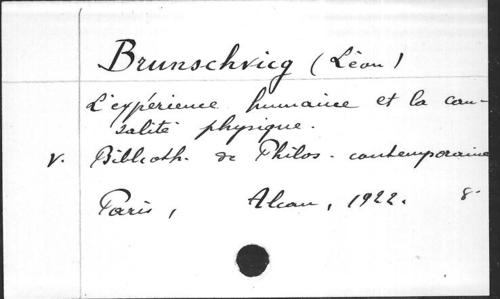 Brunschvicg (Léon)
L'expérience humaine et la cau-
salité physique.
v. Biblioth. de Philos. contemporaine
Paris, Alcan, 1922. 8.